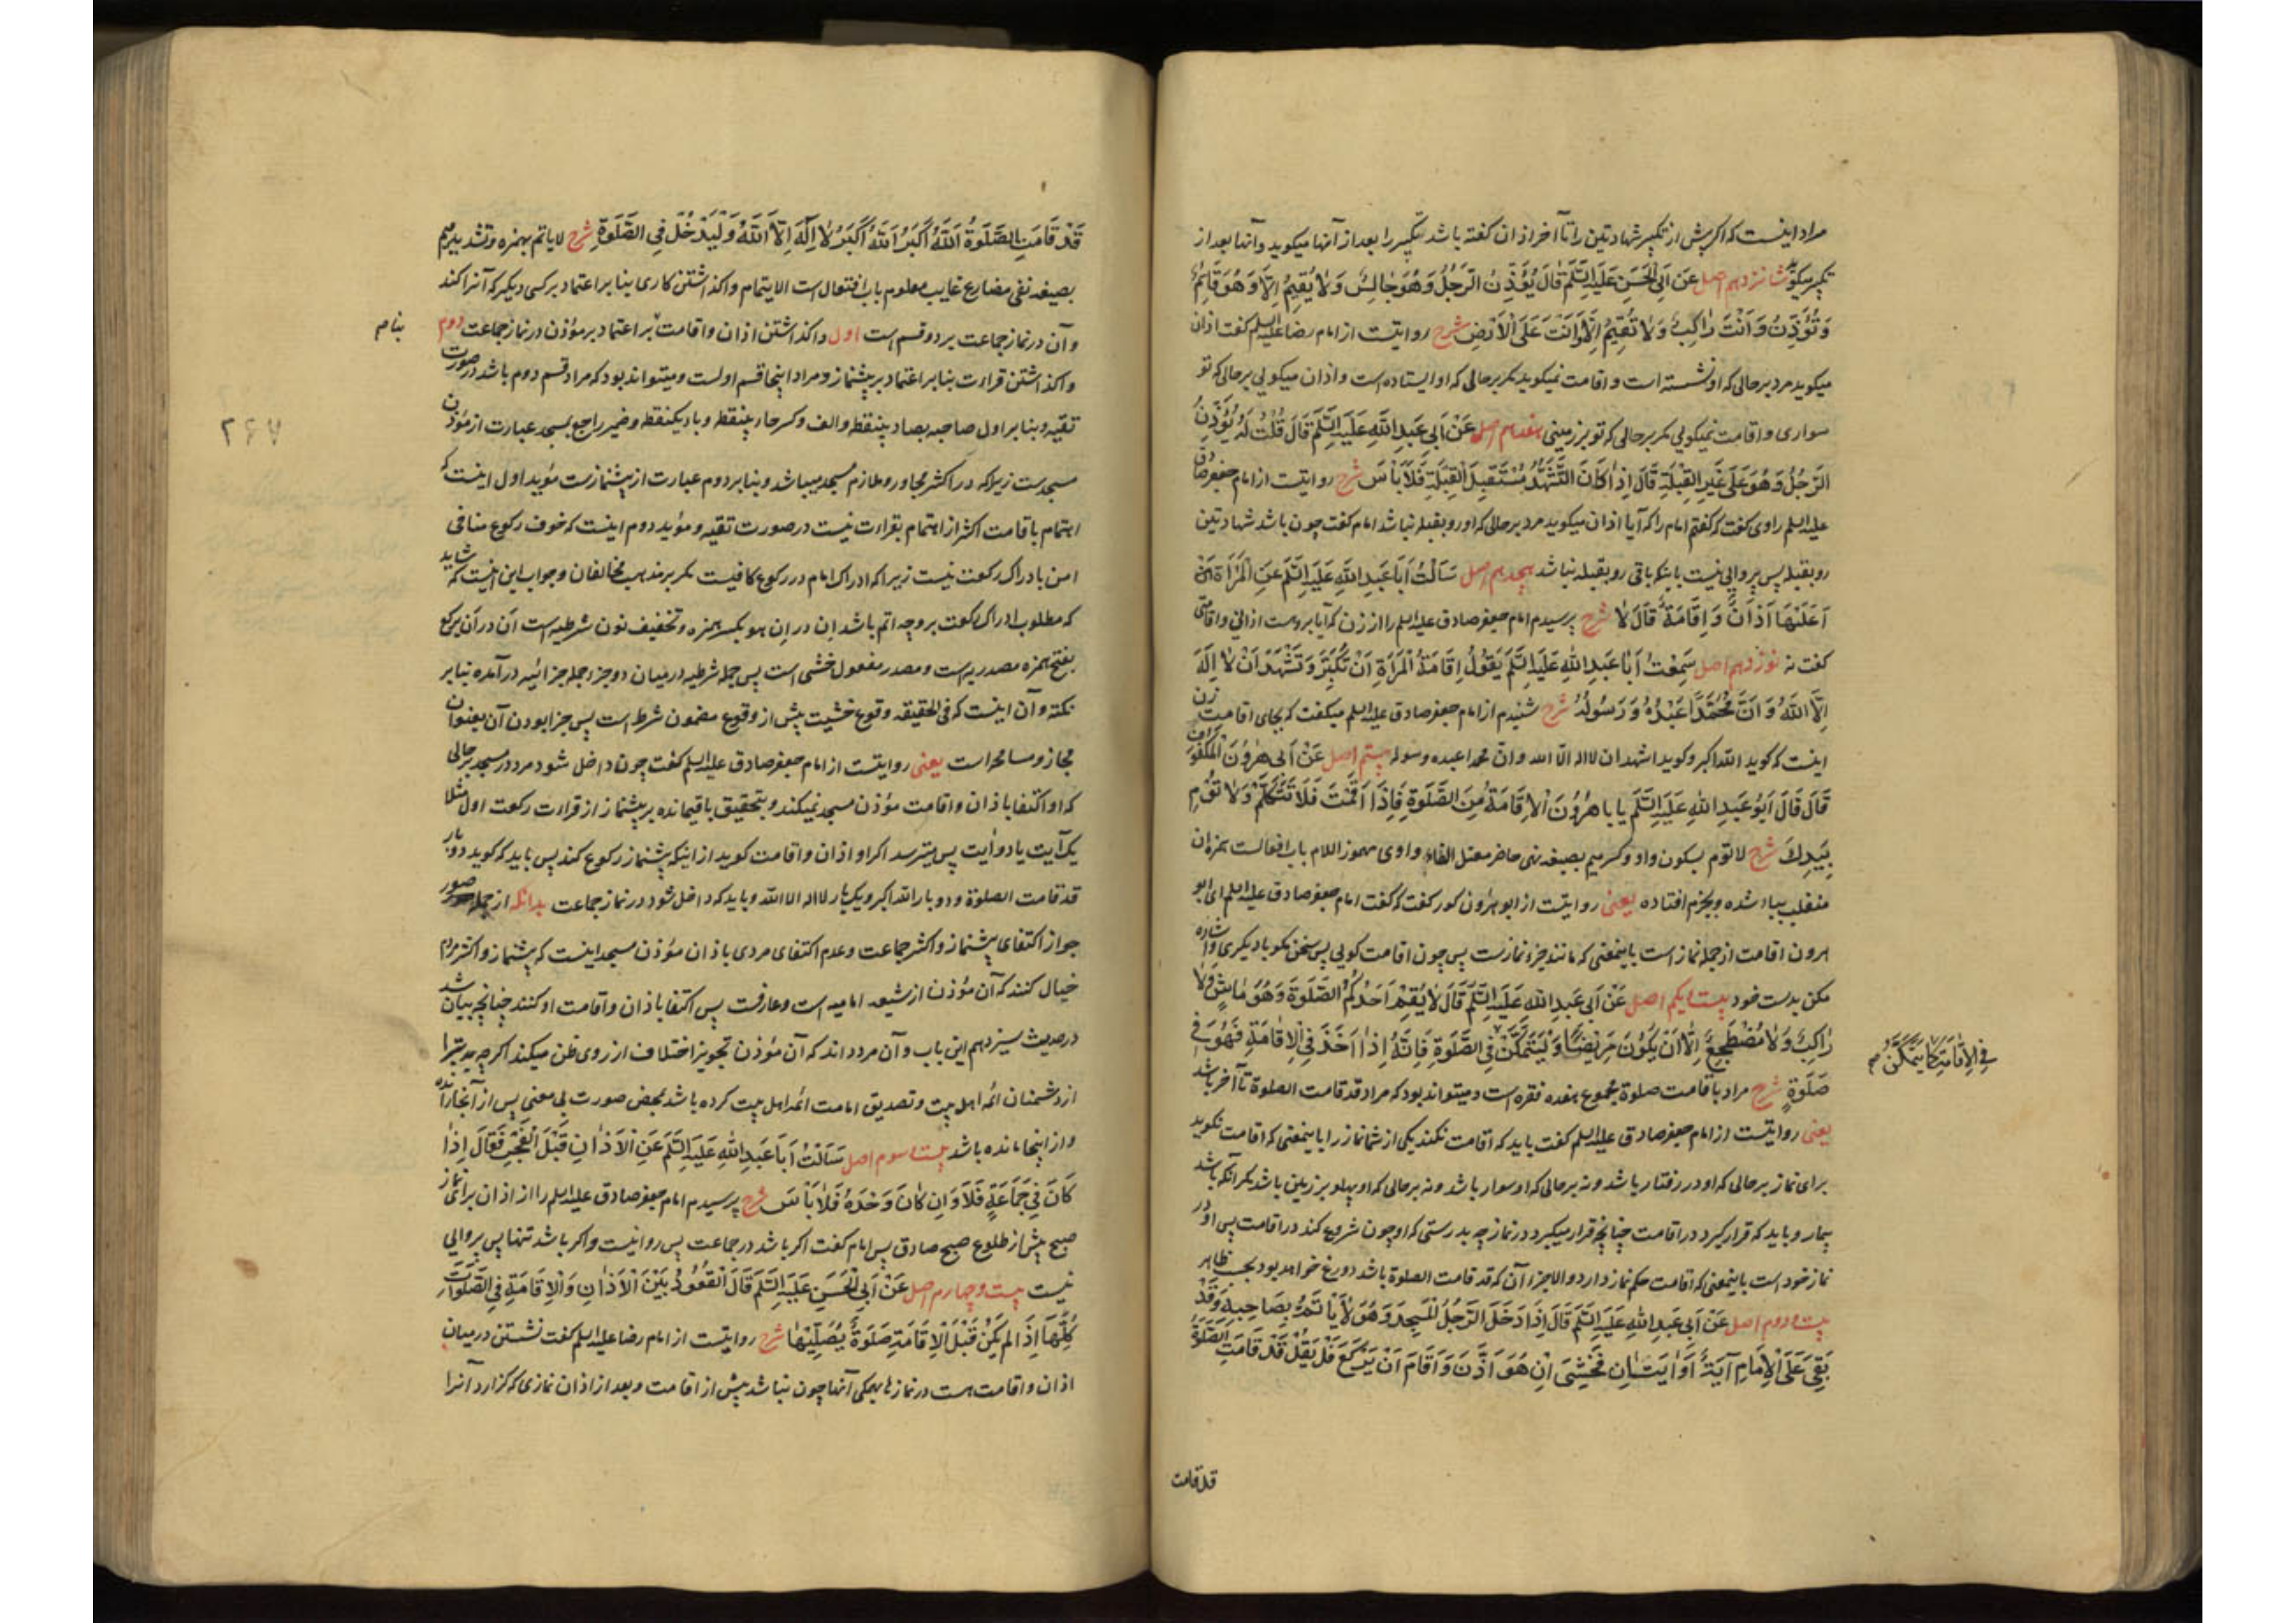 مراد اینست که اگر پیش از تکبیر شهادتین را تا آخر اذان گفته باشد تکبیر را بعد از آنها میگوید و آنها بعد از
تکبیر میگوید شانزدهم اصل عَن اَبِی الْحَسَنِ عَلَیهِ السَّلَم قَالَ یُؤَذِّنُ الرَّجُلُ وَهُوَ جَالِسٌ وَلَا یُقِیمُ اِلَّا وَهُوَ قَائِمٌ
وَتُؤَذِّنُ وَاَنْتَ رَاکِبٌ وَلَا تُقِیمُ اِلَّا وَاَنْتَ عَلَی الْاَرْضِ شرح روایتست از امام رضا علیه السلم گفت اذان
میگوید مرد بر حالی که او نشسته است و اقامت نمیگوید مگر بر حالی که او ایستاده است و اذان میگویی بر حالی که تو
سواری و اقامت نمیگویی مگر بر حالی که تو بر زمینی هفدهم اصل عَنْ اَبِی عَبدِ اللهِ عَلَیهِ السَّلَم قَالَ قُلْتُ لَهُ یُؤَذِّنُ
الرَّجُلُ وَهُوَ عَلَی غَیرِ القِبْلَةِ قَالَ اِذَا کَانَ التَّشَهُّدُ مُسْتَقبِلَ القِبْلَةِ فَلَا بَأسَ شرح روایتست از امام جعفر صادق
علیه السلم راوی گفت که گفتم امام را که آیا اذان میگوید مرد بر حالی که او رو بقبله نباشد امام گفت چون باشد شهادتین
رو بقبله پس پروایی نیست باینکه باقی رو بقبله نباشد هجدهم اصل سَاَلْتُ اَبَا عَبدِ اللهِ عَلَیهِ السَّلَم عَنِ الْمَرْاَةِ
اَعَلَیْهَا اَذَانٌ وَاِقَامَةٌ قَالَ لَا شرح پرسیدم امام جعفر صادق علیه السلم را از زن که آیا بر اوست اذانی و اقامتی
گفت نه نوزدهم اصل سَمِعْتُ اَبَا عَبدِ اللهِ عَلَیهِ السَّلَم یَقُولُ اِقَامَةُ الْمَرْاَةِ اَنْ تُکَبِّرَ وَتَشْهَدَ اَنْ لَا اِلَهَ
اِلَّا اللهُ وَاَنَّ مُحَمَّدًا عَبْدُهُ وَرَسُولُهُ شرح شنیدم از امام جعفر صادق علیه السلم میگفت که بجای اقامت زن
اینست که گوید الله اکبر و گوید اشهد ان لا اله الا الله و ان محمدا عبده و رسوله بیستم اصل عَنْ اَبِی هٰرُونَ الْمَکْفُوفِ
قَالَ قَالَ اَبُو عَبدِ اللهِ عَلَیهِ السَّلَم یا با هٰرُونَ الْاِقَامَةُ مِنَ الصَّلٰوةِ فَاِذَا اَقَمْتَ فَلَا تَتَکَلَّمْ وَلَا تُوْمِ
بِیَدِكَ شرح لا توم بسکون واو و کسر میم بصیغه نهی حاضر معتل الفاء واوی مهموز اللام باب افعالست همزه آن
منقلب بیاء شده و بجزم افتاده یعنی روایتست از ابو هرون کور گفت که گفت امام جعفر صادق علیه السلم ای ابو
هرون اقامت از جمله نماز است باینمعنی که مانند جزء نمازست پس چون اقامت گویی پس سخن مگو با دیگری و اشاره
مکن بدست خود بیست و یکم اصل عَنْ اَبِی عَبدِ اللهِ عَلَیهِ السَّلَم قَالَ لَا یُقِیمُ اَحَدُکُمُ الصَّلٰوةَ وَهُوَ مَاشٍ وَلَا
رَاکِبٌ وَلَا مُضْطَجِعٌ اِلَّا اَنْ یَکُونَ مَرِیضًا وَلْیَتَمَکَّنْ فِی الصَّلٰوةِ فَاِنَّهُ اِذَا اَخَذَ فِی الْاِقَامَةِ فَهُوَ فِی
فِی الْاِقَامَةِ کَمَا یَتَمَکَّنُ
صَلٰوةٍ شرح مراد باقامت صلوة مجموع هفده فقره است و میتواند بود که مراد قد قامت الصلوة تا آخر باشد
یعنی روایتست از امام جعفر صادق علیه السلم گفت باید که اقامت نکند یکی از شما نماز را باینمعنی که اقامت نگوید
برای نماز بر حالی که او در رفتار باشد و نه بر حالی که او سوار باشد و نه بر حالی که او پهلو بر زمین باشد مگر آنکه باشد
بیمار و باید که قرار گیرد در اقامت چنانچه قرار میگیرد در نماز چه بدرستی که او چون شروع کند در اقامت پس او در
نماز خود است باینمعنی که اقامت حکم نماز دارد و الا جزء آن که قد قامت الصلوة باشد دورغ خواهد بود بحسب ظاهر
بیست و دوم اصل عَنْ اَبِی عَبدِ اللهِ عَلَیهِ السَّلَم قَالَ اِذَا دَخَلَ الرَّجُلُ الْمَسْجِدَ وَهُوَ لَا یَأتَمُّ بِصَاحِبِهِ وَقَدْ
بَقِیَ عَلَی الْاِمَامِ آیَةٌ اَوْ آیَتَانِ فَخَشِیَ اِنْ هُوَ اَذَّنَ وَاَقَامَ اَنْ یَرْکَعَ فَلْیَقُلْ قَدْ قَامَتِ الصَّلٰوةُ
قد قامت
قَدْ قَامَتِ الصَّلٰوةُ اَللهُ اَکْبَرُ اَللهُ اَکْبَرُ لَا اِلٰهَ اِلَّا اللهُ وَلْیَدْخُلْ فِی الصَّلٰوةِ شرح لا یاتم بهمزه و تشدید میم
بصیغه نفی مضارع غایب معلوم باب افتعال است الایتمام واگذاشتن کاری بنا بر اعتماد بر کسی دیگر که آنرا کند
و آن در نماز جماعت بر دو قسم است اول واگذاشتن اذان و اقامت بر اعتماد بر مؤذن در نماز جماعت دوم
بنا
واگذاشتن قراءت بنا بر اعتماد بر پیشنماز و مراد اینجا قسم اولست و میتواند بود که مراد قسم دوم باشد در صورت
تقیه و بنا بر اول صاحبه بصاد بینقطه و الف و کسر حاء بینقطه و باء یکنقطه و ضمیر راجع بمسجد عبارت از مؤذن
مسجدست زیرا که در اکثر مجاور و ملازم مسجد میباشد و بنا بر دوم عبارت از پیشنمازست مؤید اول اینست که
اهتمام باقامت اکثر از اهتمام بقراءت نیست در صورت تقیه و مؤید دوم اینست که خوف رکوع منافی
امن بادراک رکعت نیست زیرا که ادراک امام در رکوع کافیست مگر بر مذهب مخالفان و جواب این اینست که شاید
که مطلوب ادراک رکعت بر وجه اتم باشد ان در ان هو بکسر همزه و تخفیف نون شرطیه است ان در ان یرکع
بفتح همزه مصدریه است و مصدر مفعول خشی است پس جمله شرطیه در میان دو جزء جمله جزائیه در آمده بنا بر
نکته و آن اینست که فی الحقیقه وقوع خشیت پیش از وقوع مضمون شرط است پس جزا بودن آن بعنوان
مجاز و مسامحه است یعنی روایتست از امام جعفر صادق علیه السلم گفت چون داخل شود مرد در مسجد بر حالی
که او اکتفا باذان و اقامت مؤذن مسجد نمیکند و بتحقیق باقیمانده بر پیشنماز از قراءت رکعت اول مثلا
یک آیت یا دو آیت پس میترسد اگر او اذان و اقامت گوید از اینکه پیشنماز رکوع کند پس باید که گوید دو بار
قد قامت الصلوة و دو بار الله اکبر و یک بار لا اله الا الله و باید که داخل شود در نماز جماعت بدانکه از جمله صور
جواز اکتفای پیشنماز و اکثر جماعت و عدم اکتفای مردی باذان مؤذن مسجد اینست که پیشنماز و اکثر مردم
خیال کنند که آن مؤذن از شیعه امامیه است و عارفست پس اکتفا باذان و اقامت او کنند چنانچه بیان شد
در حدیث سیزدهم این باب و آن مرد داند که آن مؤذن تجویز اختلاف از روی ظن میکند اگر چه تبرا
از دشمنان ائمه اهل بیت و تصدیق امامت ائمه اهل بیت کرده باشد بمحض صورت بی معنی پس از آنجا رانده
و از اینجا مانده باشد بیست و سوم اصل سَاَلْتُ اَبَا عَبدِ اللهِ عَلَیهِ السَّلَم عَنِ الْاَذَانِ قَبْلَ الْفَجْرِ فَقَالَ اِذَا
کَانَ فِی جَمَاعَةٍ فَلَا وَاِنْ کَانَ وَحْدَهُ فَلَا بَأسَ شرح پرسیدم امام جعفر صادق علیه السلم را از اذان برای نماز
صبح پیش از طلوع صبح صادق پس امام گفت اگر باشد در جماعت پس روا نیست و اگر باشد تنها پس پروایی
نیست بیست و چهارم اصل عَنْ اَبِی الْحَسَنِ عَلَیهِ السَّلَم قَالَ اَلْقُعُودُ بَیْنَ الْاَذَانِ وَالْاِقَامَةِ فِی الصَّلَوَاتِ
کُلِّهَا اِذَا لَمْ یَکُنْ قَبْلَ الْاِقَامَةِ صَلٰوةٌ یُصَلِّیْهَا شرح روایتست از امام رضا علیه السلم گفت نشستن در میان
اذان و اقامت هست در نمازها همگی آنها چون نباشد پیش از اقامت و بعد از اذان نمازی که گزارد آنرا
۲۶۷